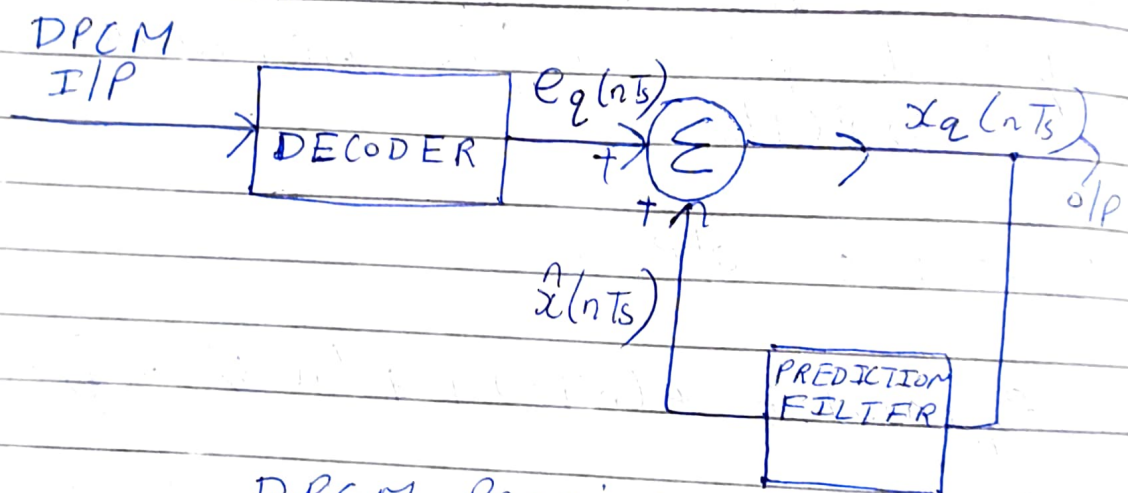 DPCM
I/P
DECODER
eq(nTs)
+
Σ
+
xq(nTs)
O/P
x̂(nTs)
PREDICTION
FILTER
DPCM